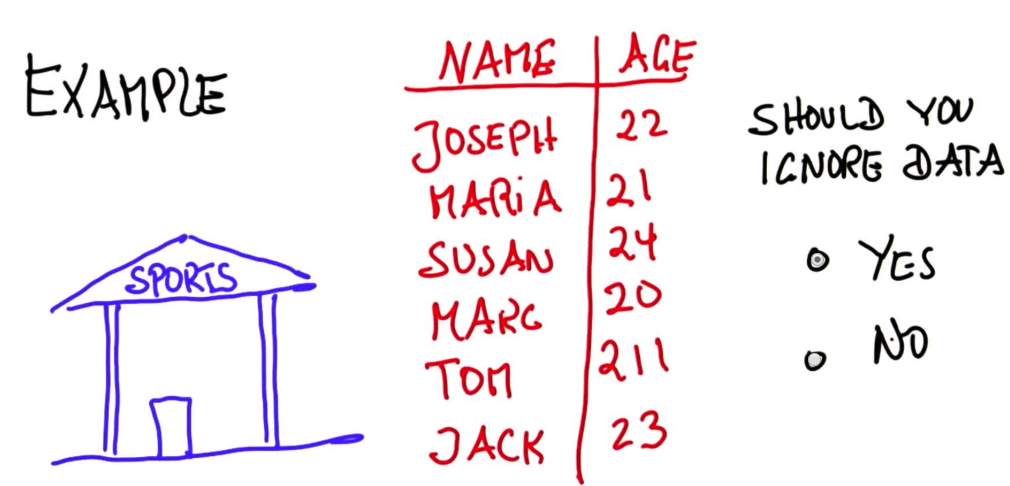 EXAMPLE
SPORTS
NAME AGE
JOSEPH 22
MARiA 21
SUSAN 24
MARC 20
TOM 211
JACK 23
SHOULD YOU
IGNORE DATA
YES
NO